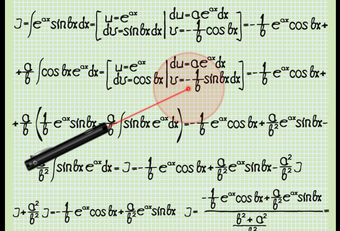 J=∫e^{ax}sinbxdx=[u=e^{ax} dv=sinbxdx | du=ae^{ax}dx v=-1/b cosbx]=-1/b e^{ax}cos bx+
+a/b ∫cos bxe^{ax}dx=[u=e^{ax} dv=cos bx | du=ae^{ax}dx v=-1/b sinbxdx]=-1/b e^{ax}cos bx+
+a/b (1/b e^{ax}sinbx-a/b ∫sinbx e^{ax}dx)=-1/b e^{ax}cos bx+a/b² e^{ax}sinbx-
a²/b² ∫sinbx e^{ax}dx=J=-1/b e^{ax}cos bx+a/b² e^{ax}sinbx-a²/b² J
J+a²/b² J=-1/b e^{ax}cos bx+a/b² e^{ax}sinbx J= (-1/b e^{ax}cos bx+a/b² e^{ax}sinbx)/((b²+a²)/b²) =